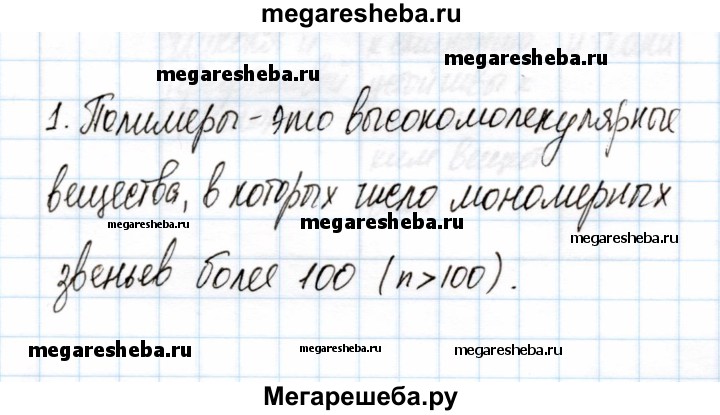 megaresheba.ru
megaresheba.ru
megaresheba.ru
1. Полимеры - это высокомолекулярные
вещества, в которых число мономерных
megaresheba.ru
megaresheba.ru
megaresheba.ru
звеньев более 100 (n>100).
megaresheba.ru
megaresheba.ru
megaresheba.ru
Мегарешеба.ру